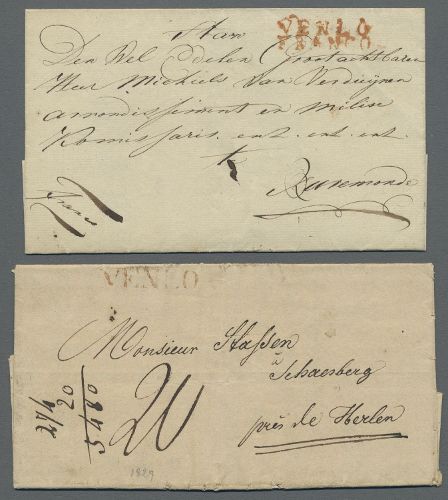 VENLO
FRANCO
Aan
Den Wel Edelen Grootachtbaren
Heer Michiels Van Verduynen
arrondissiment en milise
Komissaris. ent. ent. ent.
Ruremonde
Franco
VENLO
Monsieur Stassen
à Schaesberg
près de Herlen
20
274
20
5480
1829